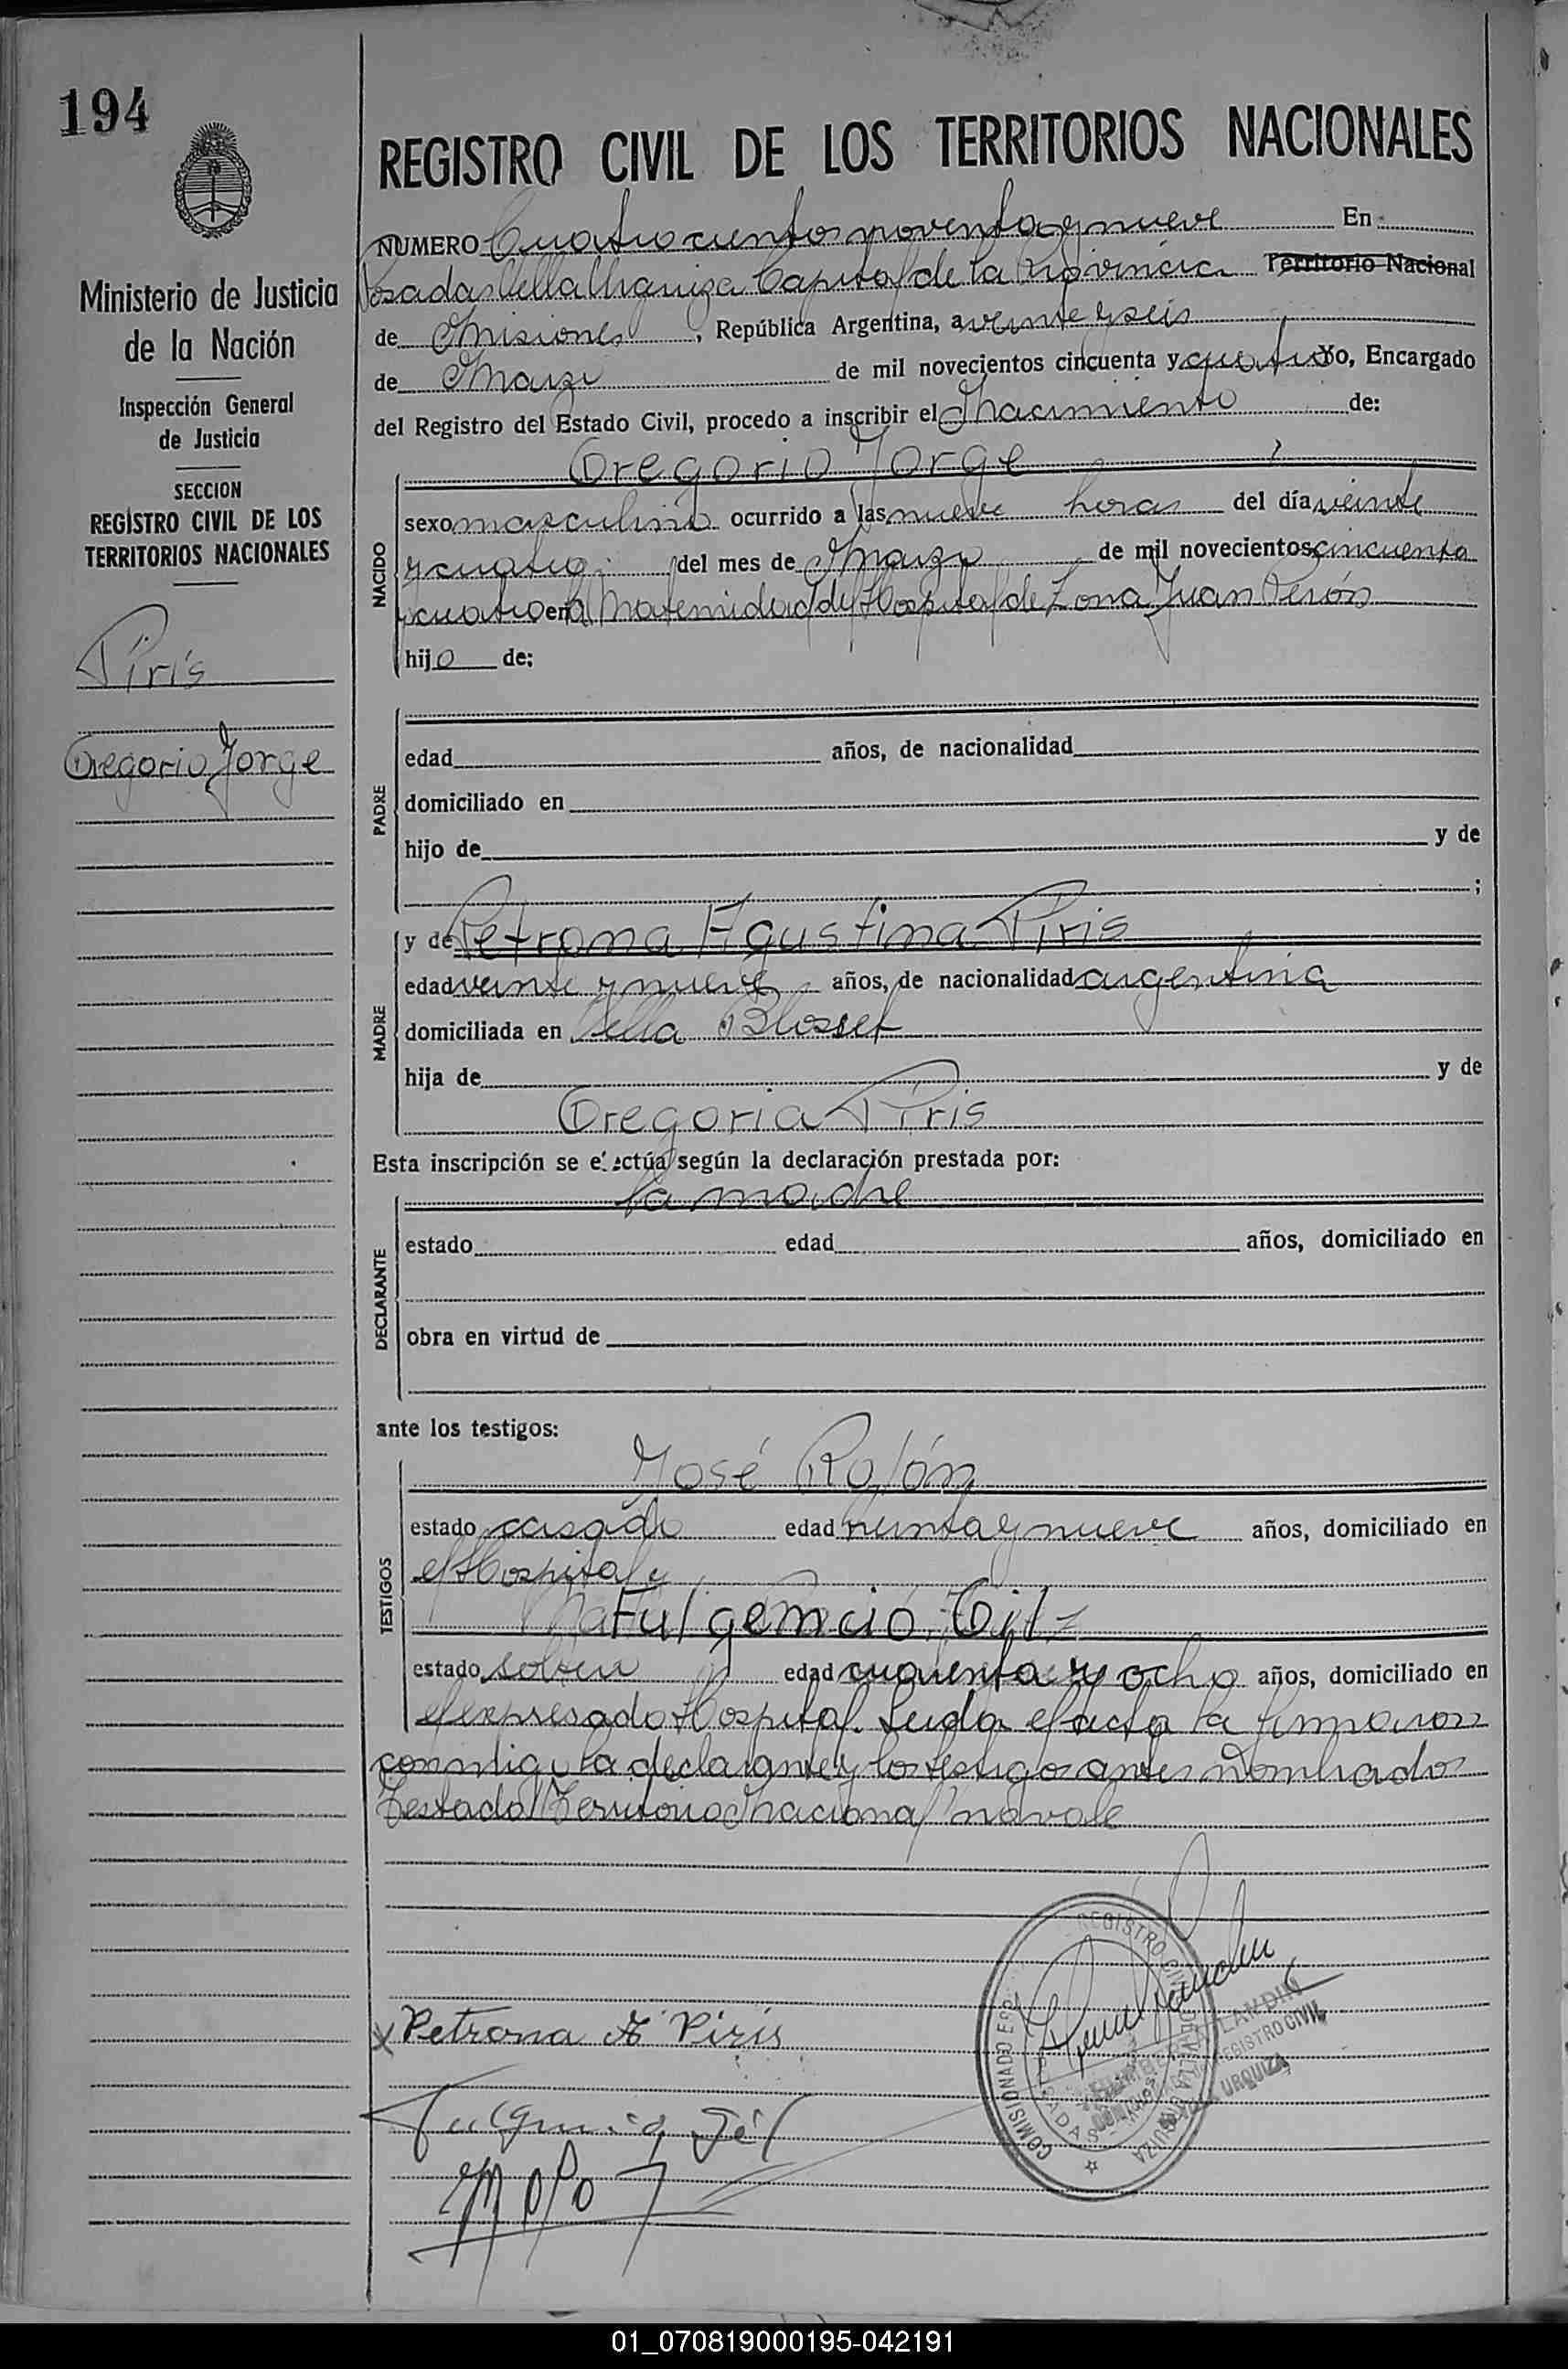 194
REGISTRO CIVIL DE LOS TERRITORIOS NACIONALES
Ministerio de Justicia
de la Nación
Inspección General
de Justicia
SECCION
REGISTRO CIVIL DE LOS
TERRITORIOS NACIONALES
Piris
Gregorio Jorge
NUMERO Cuatrocientos noventa y nueve En
Posadas Villa Urquiza Capital de la Provincia Territorio Nacional
de Misiones, República Argentina, a veinte y seis
de Marzo de mil novecientos cincuenta y cuatro Yo, Encargado
del Registro del Estado Civil, procedo a inscribir el Nacimiento de:
NACIDO
Gregorio Jorge
sexo masculino ocurrido a las nueve horas del día veinte
y cuatro del mes de Marzo de mil novecientos cincuenta
y cuatro en la Maternidad del Hospital de Zona Juan Perón
hijo de:
PADRE
edad años, de nacionalidad
domiciliado en
hijo de y de
;
MADRE
y de Petrona Agustina Piris
edad veinte y nueve años, de nacionalidad argentina
domiciliada en Villa Blosset
hija de y de
Gregoria Piris
Esta inscripción se efectúa según la declaración prestada por:
DECLARANTE
la madre
estado edad años, domiciliado en
obra en virtud de
ante los testigos:
TESTIGOS
José Rolón
estado casado edad treinta y nueve años, domiciliado en
el Hospital y
Fulgencio Gil
estado soltero edad cuarenta y ocho años, domiciliado en
el expresado Hospital. Leida el acta la firmaron
conmigo la declarante y los testigos antes nombrados
Testado Territorio Nacional no vale
x Petrona A Piris
Fulgencio Gil
REGISTRO CIVIL
VILLA URQUIZA
POSADAS
01_070819000195-042191